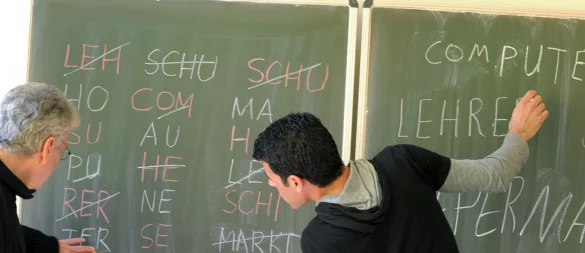 LEH SCHU SCHU
HO COM MA
SU AU H
PU HE LE
RER NE SCHI
TER SE MARKT
COMPUTE
LEHRE
PERMA